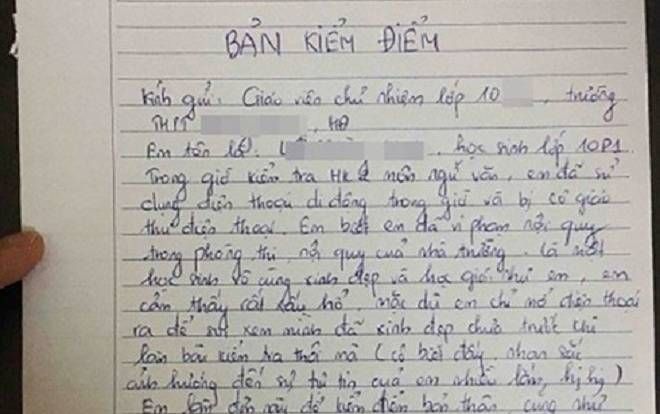 BẢN KIỂM ĐIỂM
Kính gửi: Giáo viên chủ nhiệm lớp 10 , trường
THPT , HĐ
Em tên là: L , học sinh lớp 10P1.
Trong giờ kiểm tra HK 2 môn ngữ văn, em đã sử
dụng điện thoại di động trong giờ và bị cô giáo
thu điện thoại. Em biết em đã vi phạm nội quy
trong phòng thi, nội quy của nhà trường. Là một
học sinh vô cùng xinh đẹp và học giỏi như em, em
cảm thấy rất xấu hổ, mặc dù em chỉ mở điện thoại
ra để xem mình đã xinh đẹp chưa trước khi
làm bài kiểm tra thôi mà (cô biết đấy, nhan sắc
ảnh hưởng đến sự tự tin của em nhiều lắm, hị hị)
Em bản này để kiểm điểm bản thân cũng như